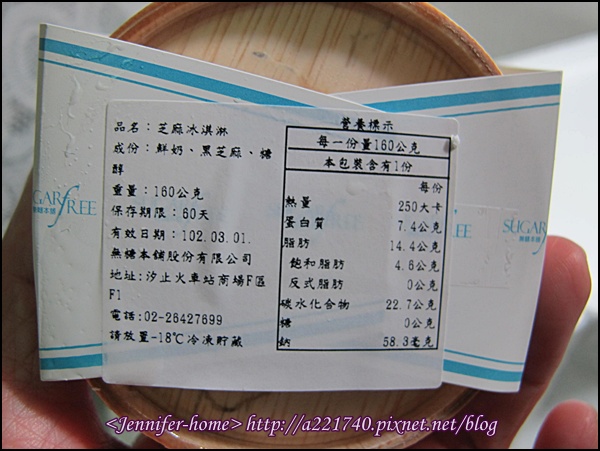 SUGARfREE
無糖本舖
品名：芝麻冰淇淋
成份：鮮奶、黑芝麻、糖
醇
重量：160公克
保存期限：60天
有效日期：102.03.01.
無糖本舖股份有限公司
地址:汐止火車站商場F區
F1
電話:02-26427699
請放置-18℃冷凍貯藏
營養標示
每一份量160公克
本包裝含有1份
每份
熱量 250大卡
蛋白質 7.4公克
脂肪 14.4公克
飽和脂肪 4.6公克
反式脂肪 0公克
碳水化合物 22.7公克
糖 0公克
鈉 58.3毫克
SUGAR
無糖本舖
REE
<Jennifer-home> http://a221740.pixnet.net/blog